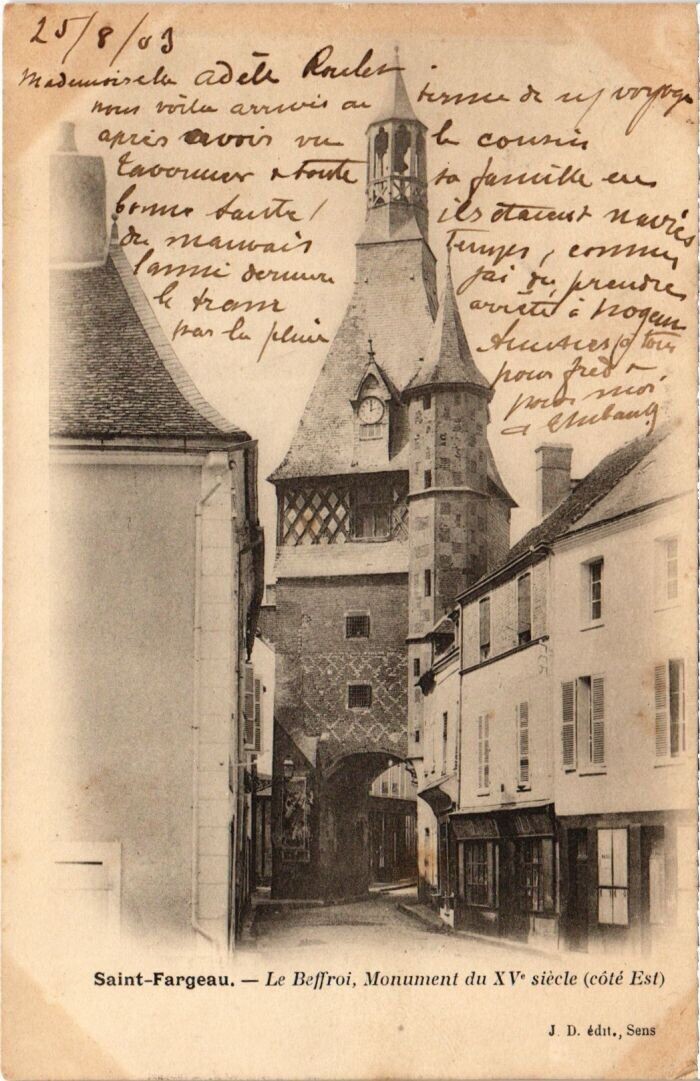 25/8/03
Mademoiselle Adèle Roulet
nous voila arrivés au terme de n/ voyage
après avois vu le cousin
Tavernier & toute sa famille en
bonne santé / ils étaient navrés
du mauvais temps, comme
j'ai dû prendre
le tram arrêté à Nogent
par la pluie Amitiés à tous
pour fred &
pour moi
Thibault
Saint-Fargeau. — Le Beffroi, Monument du XVe siècle (côté Est)
J. D. édit., Sens